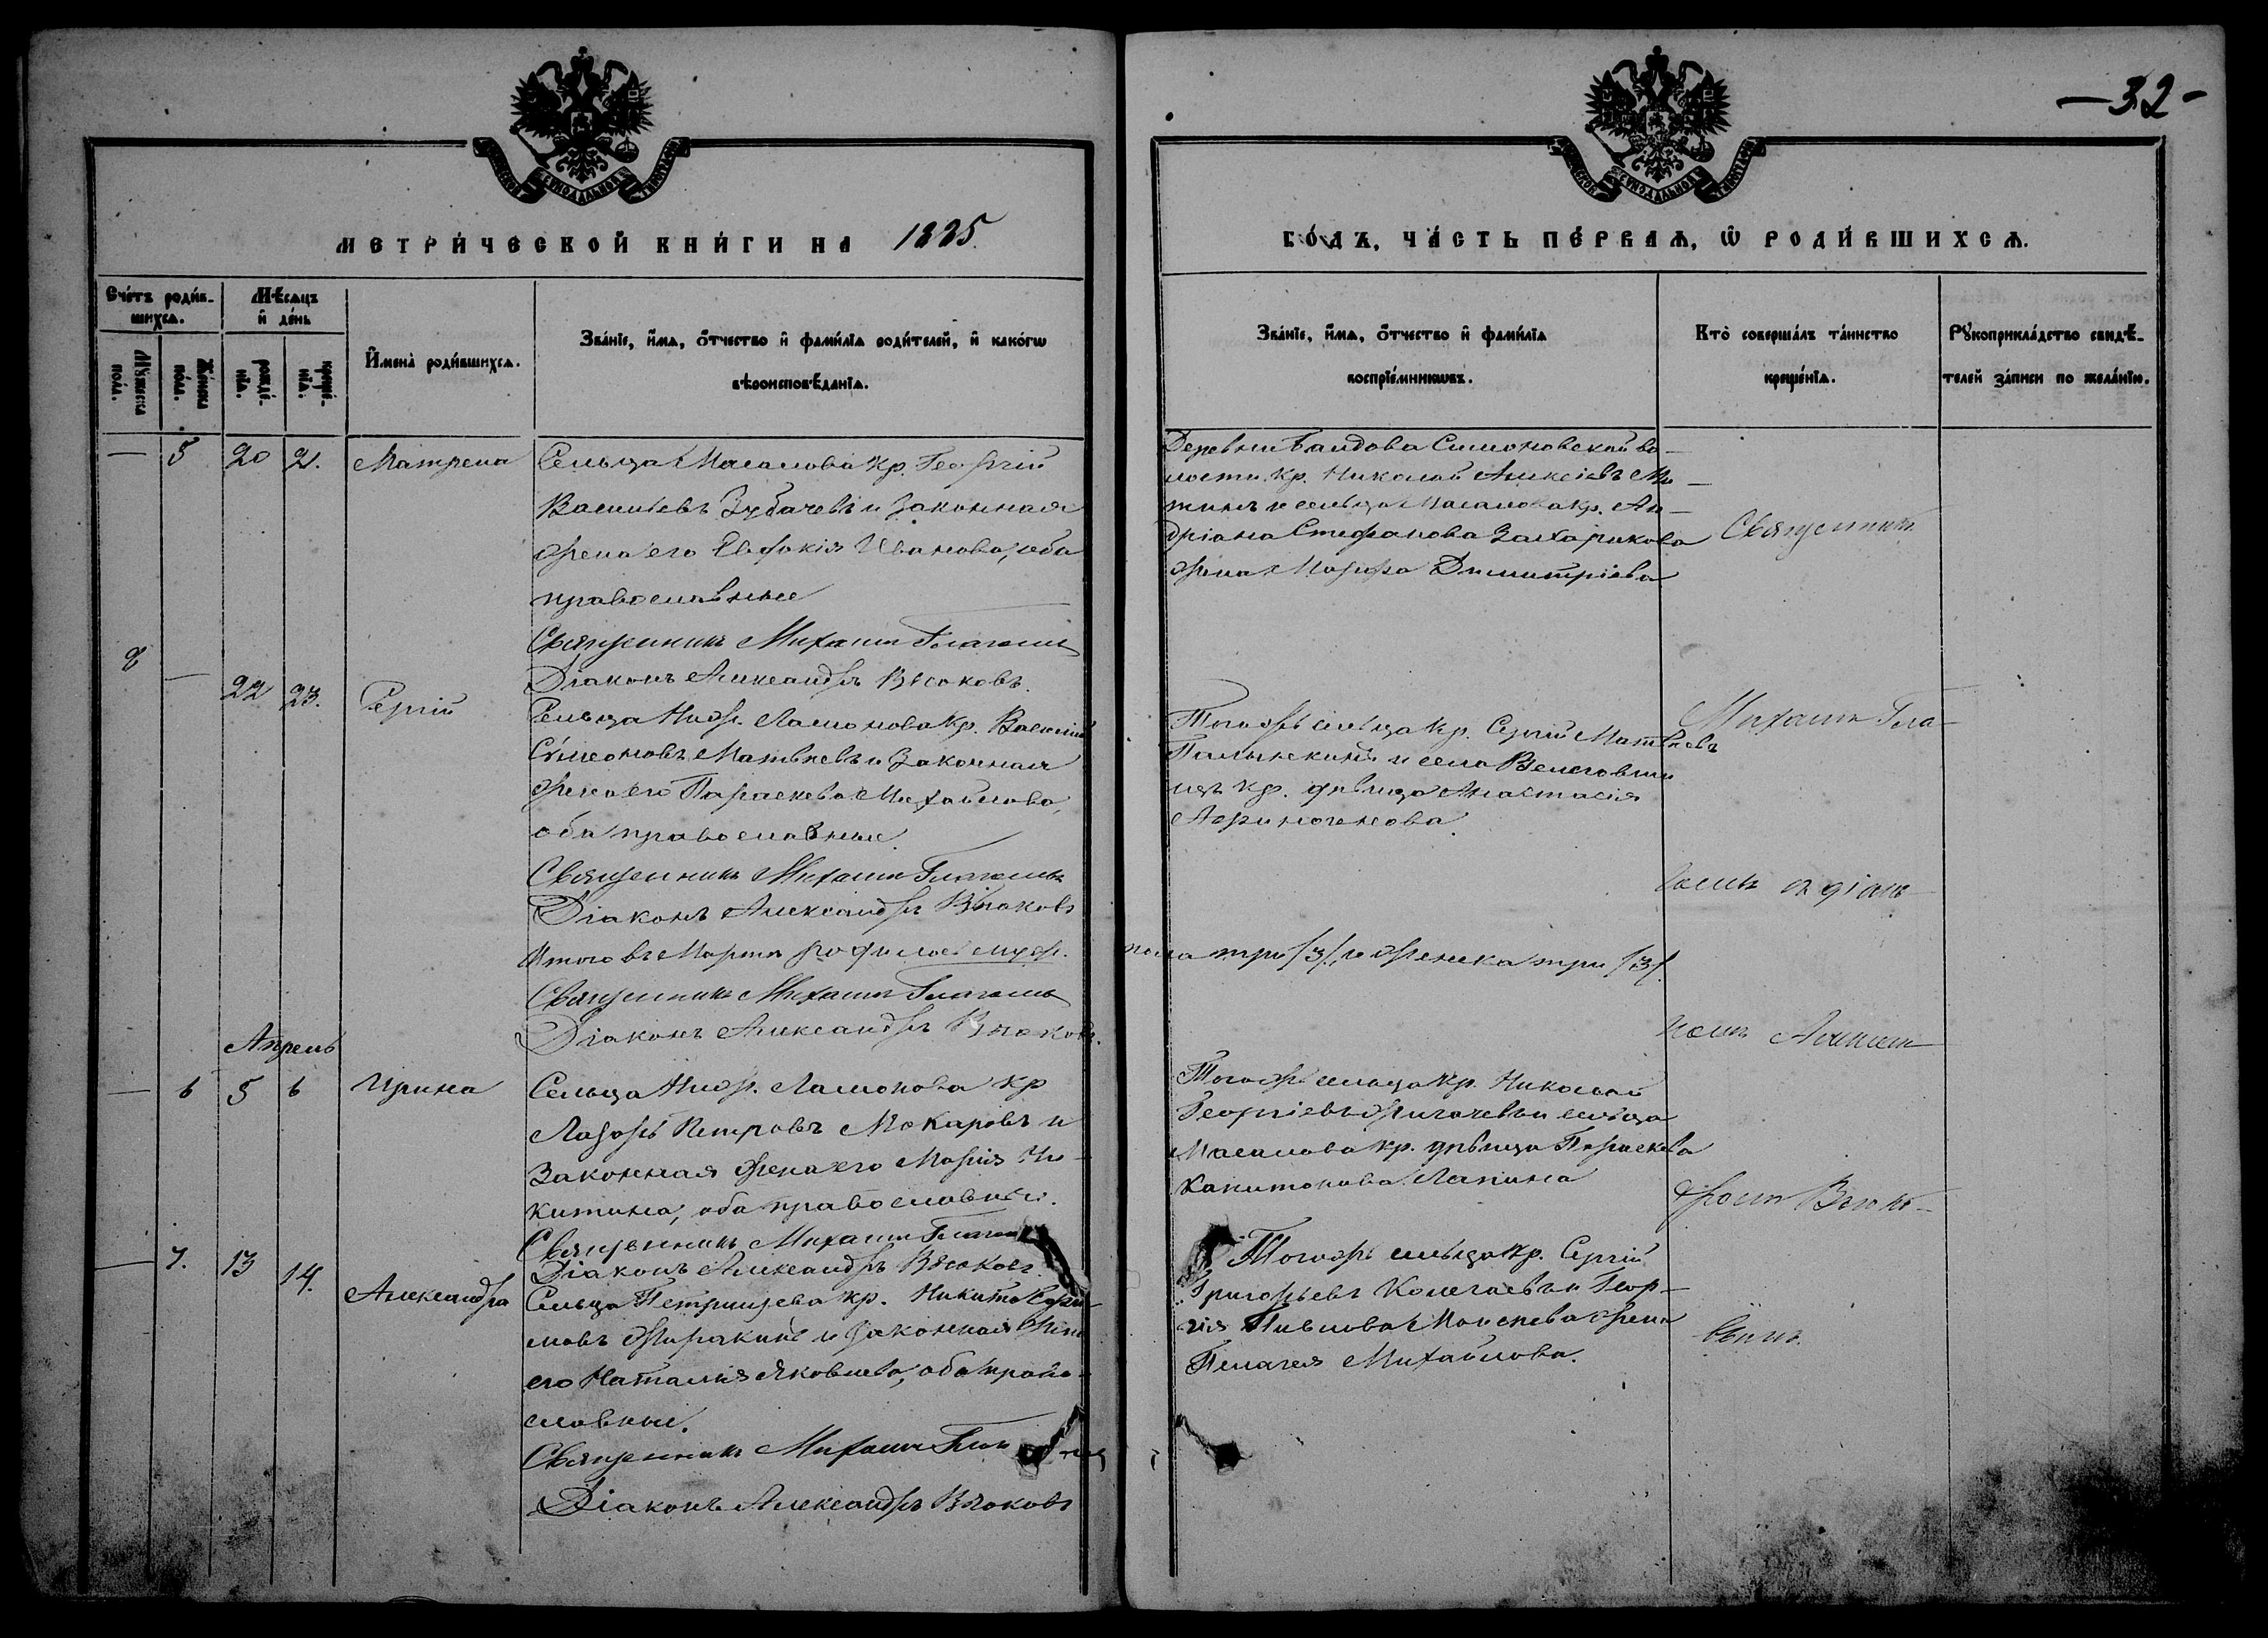 — 32 —
МЕТРИ́ЧЕСКОЙ КНИ́ГИ НА 1885.
ГО́ДЪ, ЧА́СТЬ ПЕ́РВАѦ, Ѡ РОДИ́ВШИХСѦ.
Сче́тъ роди́в-
шихсѧ.
Мѣ́сѧцъ
и҆ де́нь
Мꙋ́жеска
по́ла.
Же́нска
по́ла.
рожде́-
нїѧ.
креще́-
нїѧ.
И҆мена̀ роди́вшихсѧ.
Зва́нїе, и҆́мѧ, о҆́тчество и҆ фами́лїѧ роди́телей, и҆ како́гѡ
вѣроисповѣ́данїѧ.
Зва́нїе, и҆́мѧ, о҆́тчество и҆ фами́лїѧ
воспрїе́мникѡвъ.
Кто̀ соверша́лъ та́инство
креще́нїѧ.
Рꙋкоприкла́дство свидѣ́-
телей за́писи по жела́нїю.
— 5 20 2. Матрена
Сельца Масалова кр. Георгій
Васильевъ Зубачевъ и законная
жена его Евдокія Иванова, оба
православные
Священникъ Михаилъ Глаголевъ
Діаконъ Александръ Вѣюковъ.
Деревни Бандова Симоновской во-
лости кр. Николай Алексіевъ
и сельца Масалова кр. Ан-
дріана Стефанова Захарикова
жена Марѳа Димитріева
22 23. Сергій
Сельца Ниж. Ламонова кр. Василій
Сѵмеоновъ Матвѣевъ и законная
жена его Параскева Михайлова,
оба православные.
Священникъ Михаилъ Глаголевъ
Діаконъ Александръ Вѣюковъ
Тогожъ сельца кр. Сергій Матвѣевъ
и села
кр. дѣвица Анастасія
Аѳиногенова.
Итого въ Мартѣ родилось муж.
пола три /3/, и женска три /3/.
Священникъ Михаилъ Глаголевъ
Діаконъ Александръ Вѣюковъ.
Апрель
— 6 5 6 Ирина
Сельца Ниж. Ламонова кр
Лазарь Петровъ Макаровъ и
законная жена его Марія Ни-
китина, оба православные.
Священникъ Михаилъ
Діаконъ Александръ Вѣюковъ.
Тогожъ сельца кр. Николай
Георгіевъ и сельца
Масалова кр. дѣвица Параскева
Капитонова Лапина
— 7. 13 14. Александра
Сельца Петрищева кр. Никита
и законная жена
его Наталія Яковлева, оба право-
славные.
Священникъ Михаилъ
Діаконъ Александръ Вѣюковъ
Тогожъ сельца кр. Сергій
Григорьевъ и Геор-
гія Павлова Моисеева жена
Пелагея Михайлова.
Священникъ
Михаилъ Гла-
голевъ съ діако-
номъ Алексан-
дромъ Вѣюко-
вымъ.